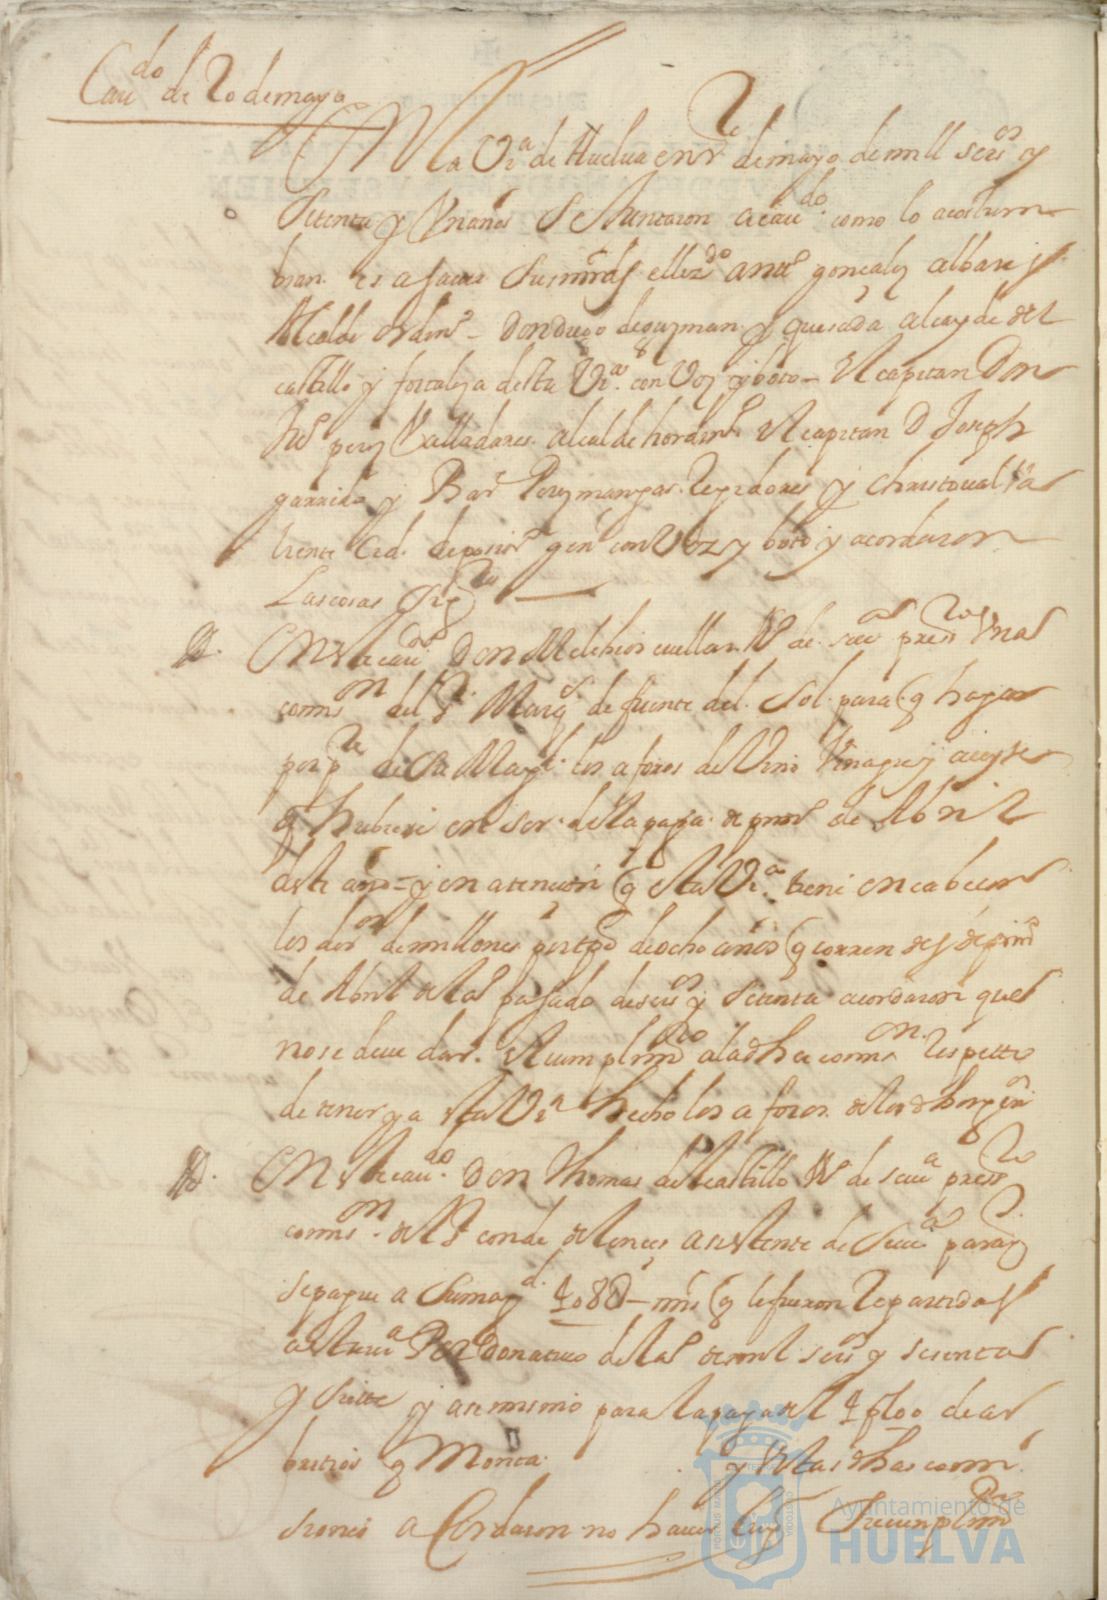 Caudo de 20 de mayo
En La Va de Huelua en Ve de mayo de mill seisos y
Setenta y Un años Se Juntaron a caudo como lo acostum
bran es a sauer Sus mrds el lizdo anto gonçales albares
Alcalde ordino Don diego de guzman y quesada alcayde del
castillo y fortaleza desta Va con Voz y boto El capitan Don
Juo perez Valladares alcalde hordino El capitan D Joseph
garrido y Bar Perez mangas Regidores y christoual Va
liente deposito gen con Voz y boto y acordaron
Las cosas sigtes
En este caudo Don Melchior cuellar Vo de seua presto Una
comison del Sr Marqs de fuente del Sol para q hagan
por pte de Su Magd los aforos de Vino Vinagre y aceyte
q hubiere en ser desta paga de primo de Abril
deste año y en atencion q esta Va tiene encabeçar
los dros de millones por tpo de ocho años q corren desde primo
de Abril del año pasado de seisos y Setenta acordaron quel
no se deue dar El cumplimto a la dha comison Respetto
de tener ya esta Va hecho los aforos
En este caudo Don Thomas del castillo Vo de seua presto
comison del Sr conde asistente de Seua para q
se pague a Su magd mrs q le fueron Repartidas
a esta Va Por donatiuo del año de mil seisos y sesenta
y siete y asimismo para la paga del de ar
bitrios q Monta y estas dhas comi
siones aCordaron no hauer lugar Su cumplimto
Ayuntamiento de
HUELVA